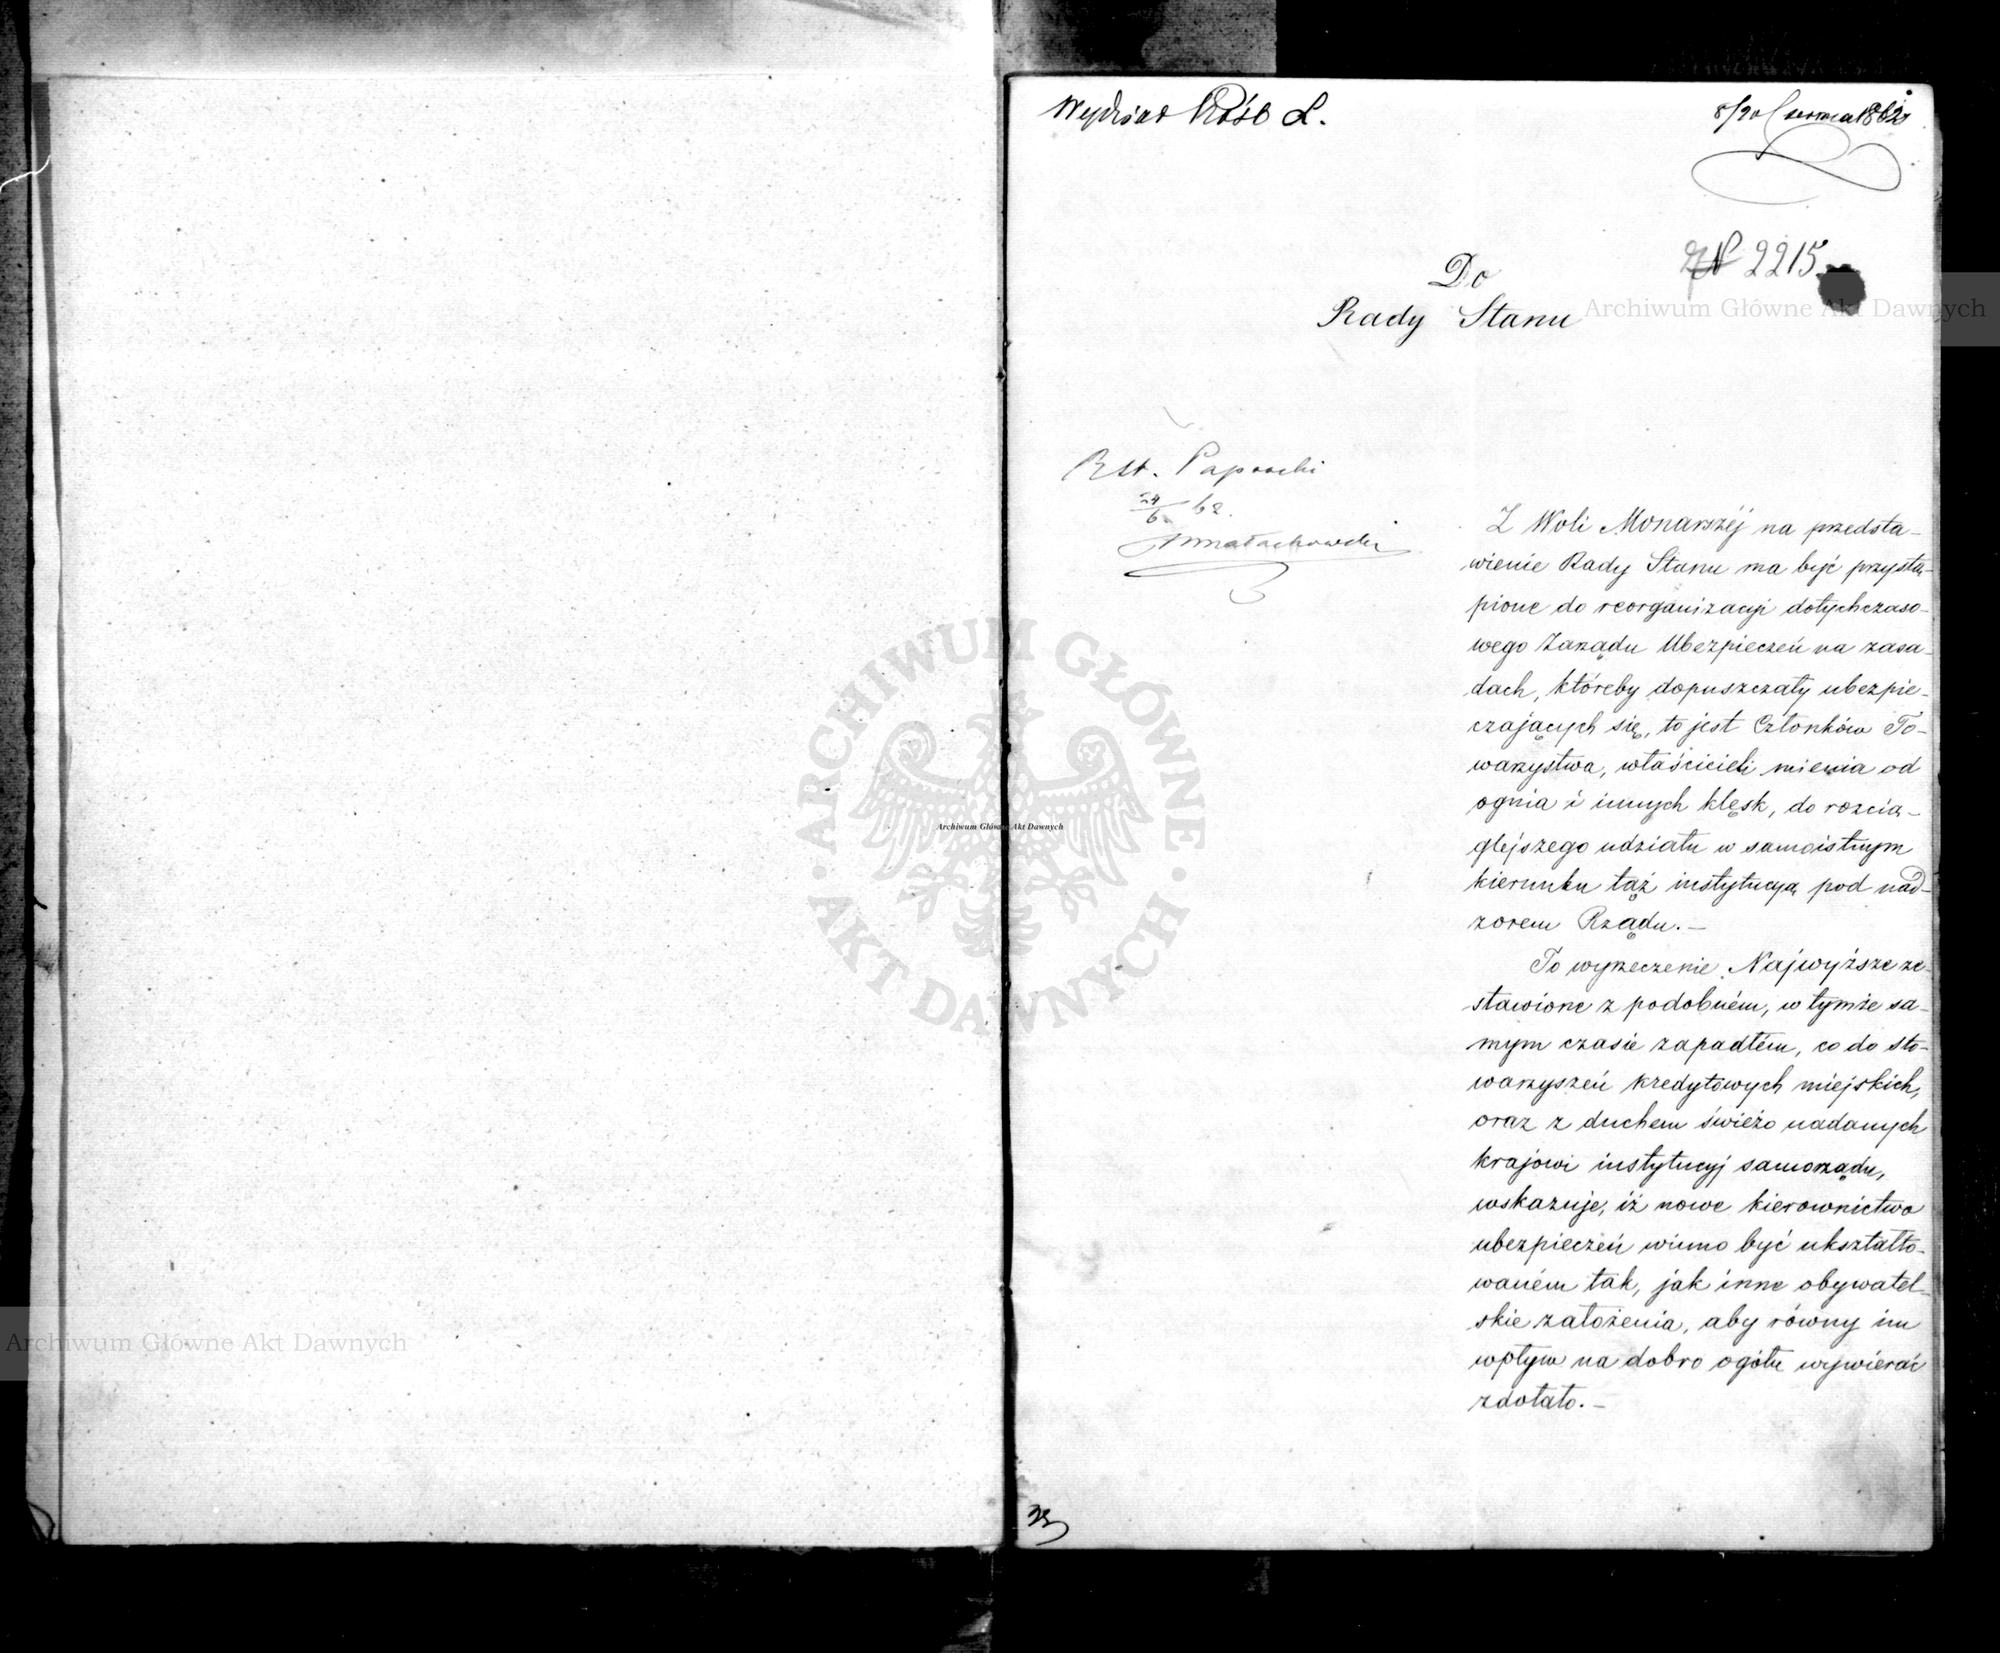 Wydział Próśb L.
8/20 Czerwca 1862
N 2215
Do
Rady Stanu
RSt. Paprocki
24/6 62.
Małachowski
Z Woli Monarszéj na przedsta-
wienie Rady Stanu ma być przystą-
pione do reorganizacyi dotychczaso-
wego Zarządu Ubezpieczeń na zasa-
dach, któreby dopuszczały ubezpie-
czających się, to jest Członków To-
warzystwa, właścicieli mienia od
ognia i innych klęsk, do rozcią-
glejszego udziału w samoistnym
kierunku tąż instytucyą pod nad-
zorem Rządu.—
To wyrzeczenie Najwyższe ze-
stawione z podobném, w tymże sa-
mym czasie zapadłém, co do sto-
warzyszeń kredytowych miejskich,
oraz z duchem świeżo nadanych
krajowi instytucyj samorządu,
wskazuje, iż nowe kierownictwo
ubezpieczeń winno być ukształto-
waném tak, jak inne obywatel-
skie założenia, aby równy im
wpływ na dobro ogółu wywierać
zdołało.—
Archiwum Główne Akt Dawnych
ARCHIWUM GŁÓWNE
AKT DAWNYCH
Archiwum Główne Akt Dawnych
Archiwum Główne Akt Dawnych